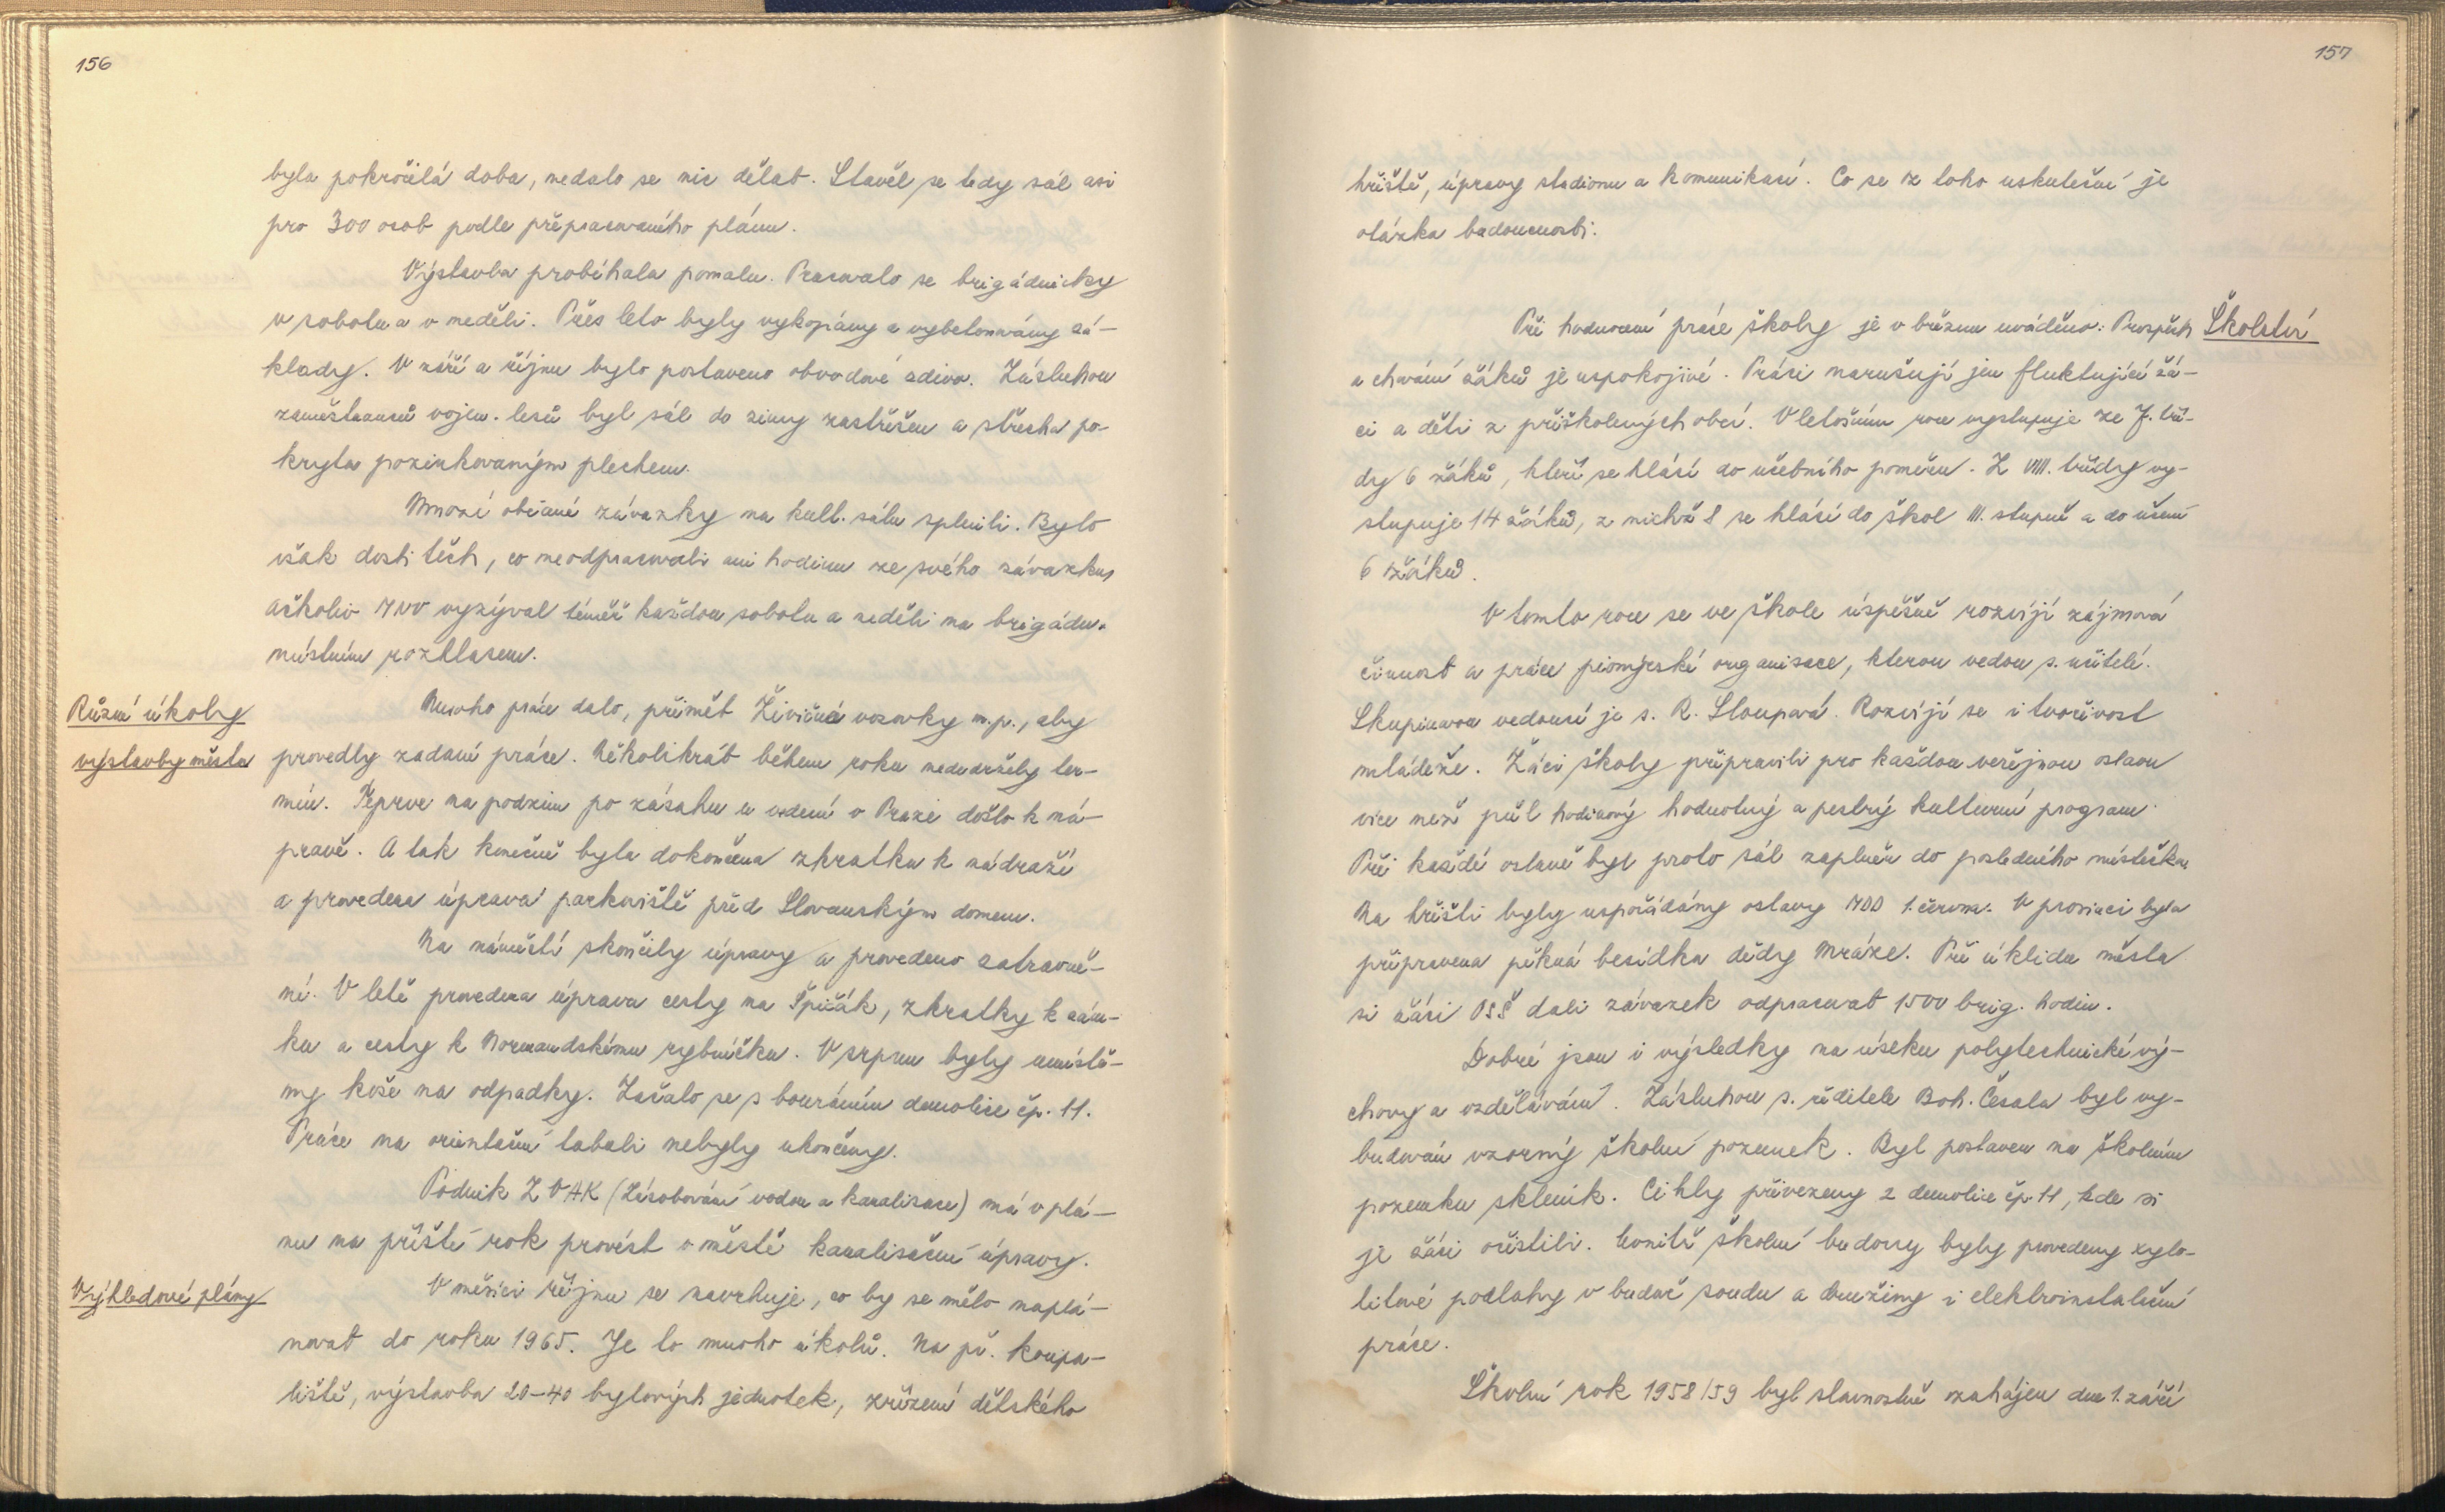 156
byla pokročilá doba, nedalo se nic dělat. Stavěl se tedy sál asi
pro 300 osob podle přepracovaného plánu.
Výstavba probíhala pomalu. Pracovalo se brigádnicky
v sobotu a v neděli. Přes léto byly vykopány a vybetonovány zá-
klady. V září a říjnu bylo postaveno obvodové zdivo. Zásluhou
zaměstnanců vojen. lesů byl sál do zimy zastřešen a střecha po-
kryta pozinkovaným plechem.
Mnozí občané závazky na kult. sálu splnili. Bylo
však dosti těch, co neodpracovali ani hodinu ze svého závazku,
ačkoliv MNV vyzýval téměř každou sobotu a neděli na brigádu
místním rozhlasem.
Různé úkoly
výstavby města
Mnoho práce dalo, přimět Živičné vozovky n.p., aby
provedly zadané práce. Několikrát během roku nedodržely ter-
mín. Teprve na podzim po zásahu u vedení v Praze došlo k ná-
pravě. A tak konečně byla dokončena zkratka k nádraží
a provedena úprava parkoviště před Slovanským domem.
Na náměstí skončily úpravy a provedeno zatravně-
ní. V létě provedena úprava cesty na Špičák, zkratky k zám-
ku a cesty k Normandskému rybníčku. V srpnu byly umístě-
ny koše na odpadky. Začalo se s bouráním demolice čp. 11.
Práce na orientační tabuli nebyly ukončeny.
Podnik ZVAK (Zásobování vodou a kanalisace) má v plá-
nu na příští rok provést v městě kanalisační úpravy.
Výhledové plány
V měsíci říjnu se navrhuje, co by se mělo naplá-
novat do roku 1965. Je to mnoho úkolů. Na př. koupa-
liště, výstavba 20-40 bytových jednotek, zřízení dětského
157
hřiště, úpravy stadionu a komunikací. Co se z toho uskuteční je
otázka budoucnosti.
Školství
Při hodnocení práce školy je v březnu uváděno: Prospěch
a chování žáků je uspokojivé. Práci narušují jen fluktující žá-
ci a děti z přiškolených obcí. V letošním roce vystupuje ze 7. tří-
dy 6 žáků, kteří se hlásí do učebního poměru. Z VIII. třídy vy-
stupuje 14 žáků, z nichž 8 se hlásí do škol III. stupně a do učení
6 žáků.
V tomto roce se ve škole úspěšně rozvíjí zájmová
činnost a práce pionýrské organisace, kterou vedou s. učitelé.
Skupinovou vedoucí je s. R. Sloupová. Rozvíjí se i tvořivost
mládeže. Žáci školy připravili pro každou veřejnou oslavu
více než půl hodinový hodnotný a pestrý kulturní program.
Při každé oslavě byl proto sál zaplněn do posledního místečka.
Na hřišti byly uspořádány oslavy MDD 1. června. V prosinci byla
připravena pěkná besídka dědy Mráze. Při úklidu města
si žáci OSŠ dali závazek odpracovat 1500 brig. hodin.
Dobré jsou i výsledky na úseku polytechnické vý-
chovy a vzdělávání. Zásluhou s. ředitele Boh. Česala byl vy-
budován vzorný školní pozemek. Byl postaven na školním
pozemku skleník. Cihly přivezeny z demolice čp. 11, kde si
je žáci očistili. Uvnitř školní budovy byly provedeny xylo-
litové podlahy v budově soudu a družiny i elektroinstalační
práce.
Školní rok 1958/59 byl slavnostně zahájen dne 1. září